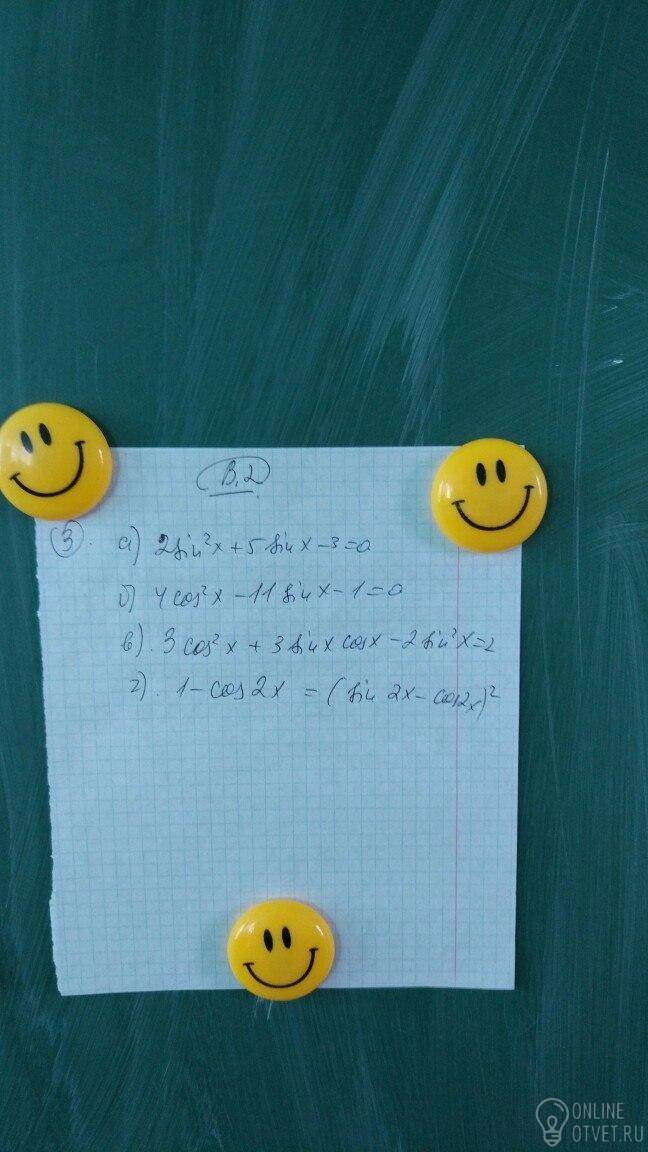 В.2
3. а) 2sin²x + 5 sin x - 3 = 0
б) 4cos²x - 11 sin x - 1 = 0
в). 3 cos²x + 3 sin x cosx - 2 sin²x = 2
г). 1 - cos 2x = (sin 2x - cos2x)²
ONLINE
OTVET.RU